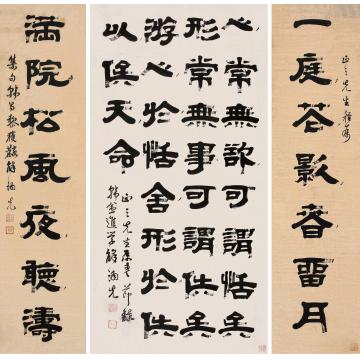 一庭花影春畱月
心常無欲可謂恬矣
形常無事可謂佚矣
游心於恬舍形於佚
以俟天命
滿院松風夜聽濤